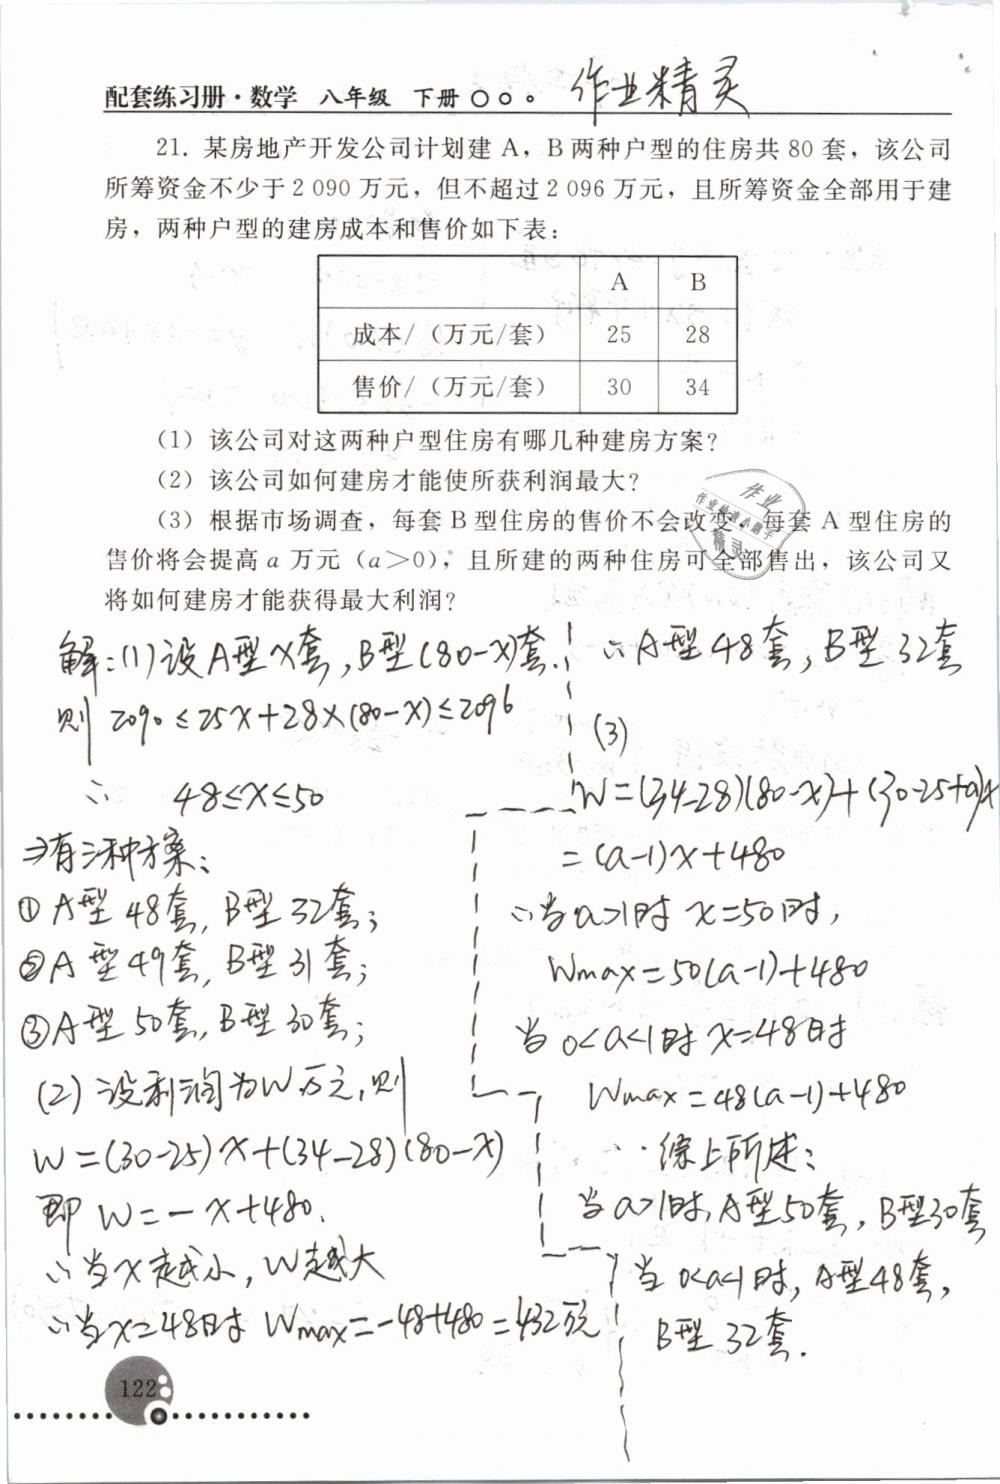 配套练习册·数学 八年级 下册 作业精灵
21. 某房地产开发公司计划建 A，B 两种户型的住房共 80 套，该公司
所筹资金不少于 2 090 万元，但不超过 2 096 万元，且所筹资金全部用于建
房，两种户型的建房成本和售价如下表：
A B
成本/（万元/套） 25 28
售价/（万元/套） 30 34
（1）该公司对这两种户型住房有哪几种建房方案？
（2）该公司如何建房才能使所获利润最大？
（3）根据市场调查，每套 B 型住房的售价不会改变，每套 A 型住房的
售价将会提高 a 万元（a＞0），且所建的两种住房可全部售出，该公司又
将如何建房才能获得最大利润？
解:(1)设A型x套,B型(80-x)套.
则 2090≤25x+28×(80-x)≤2096
∴ 48≤x≤50
⇒有三种方案:
①A型48套,B型32套;
②A型49套,B型31套;
③A型50套,B型30套;
(2)设利润为W万元,则
W=(30-25)x+(34-28)(80-x)
即 W=-x+480.
∴当x越小,W越大
∴当x=48时 Wmax=-48+480=432万元
∴A型48套,B型32套
(3)
W=(34-28)(80-x)+(30-25+a)x
=(a-1)x+480
∴当a>1时 x=50时,
Wmax=50(a-1)+480
当0<a<1时 x=48时
Wmax=48(a-1)+480
∴综上所述:
当a>1时,A型50套,B型30套
当0<a<1时,A型48套,
B型32套.
作业
精灵
122